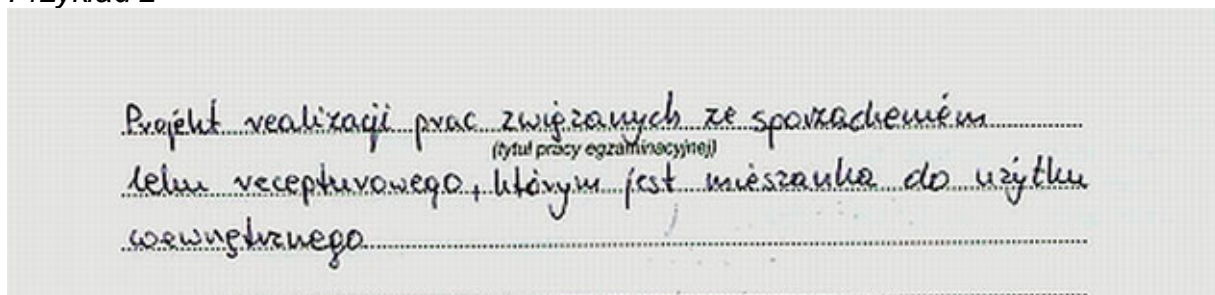 Przykład 2
Projekt realizacji prac związanych ze sporządzeniem
(tytuł pracy egzaminacyjnej)
leku recepturowego, którym jest mieszanka do użytku
wewnętrznego